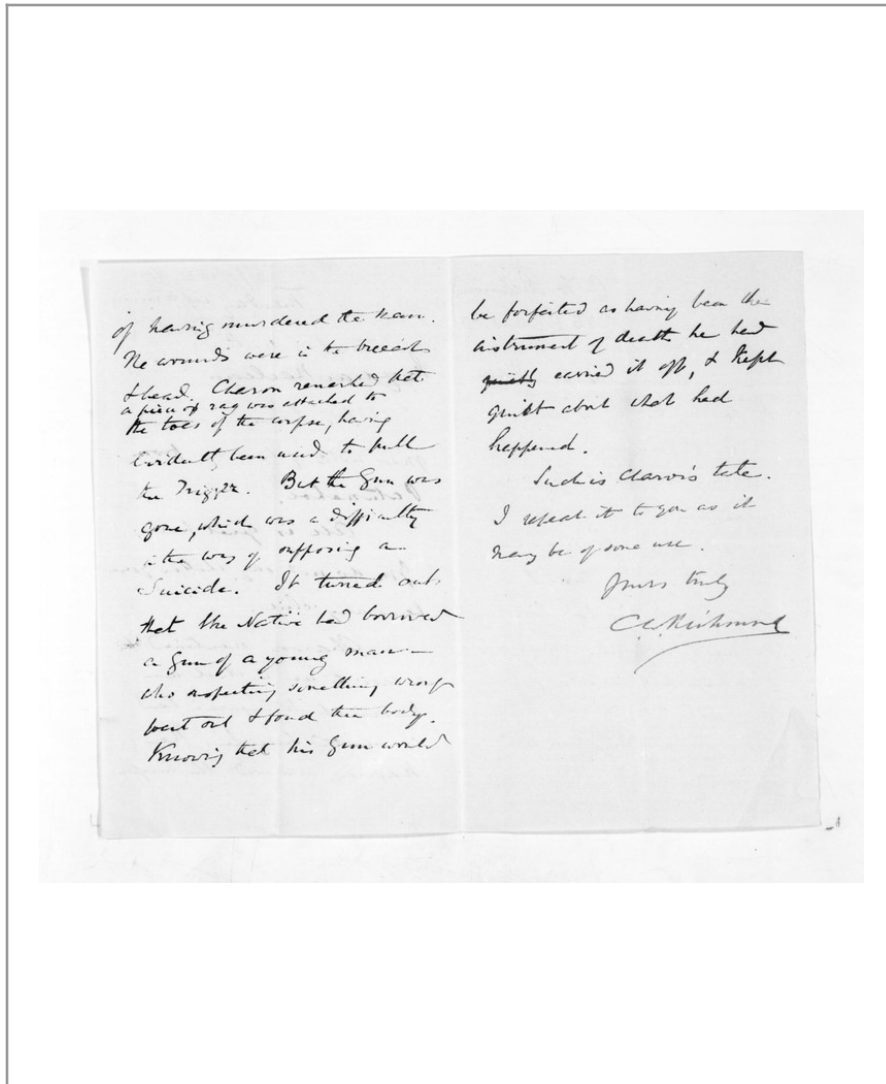 of having murdered the man.
The wounds were in the breast
& head. Charon remarked that
a piece of rag was attached to
the toes of the corpse, having
evidently been used to pull
the Trigger. But the Gun was
gone, which was a difficulty
in the way of supposing a
Suicide. It turned out
that the Native had borrowed
a Gun of a young man—
who suspecting something wrong
went out & found the body.
Knowing that his Gun would
be forfeited as having been the
instrument of death he had
quietly carried it off, & kept
quiet about what had
happened.
Such is tale.
I repeat it to you as it
may be of some use.
Yours truly
C.W. Richmond